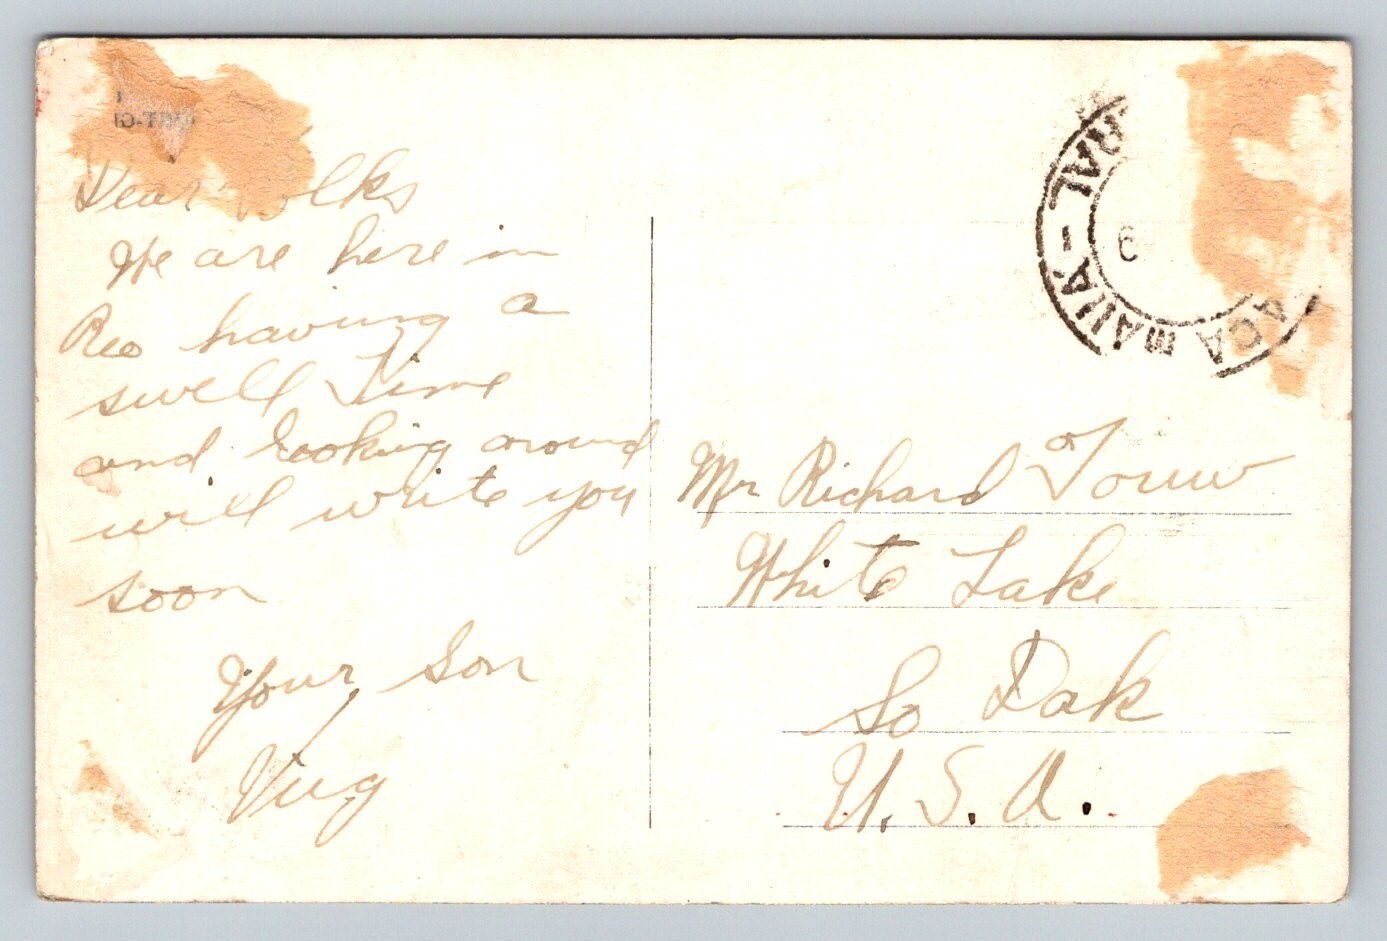 Dear Folks
We are here in
Rio having a
swell Time
and looking around
will write you
soon
Your Son
Virg
PRAÇA MAUÁ -
6
Mr Richard
White Lake
So Dak
U.S.A.